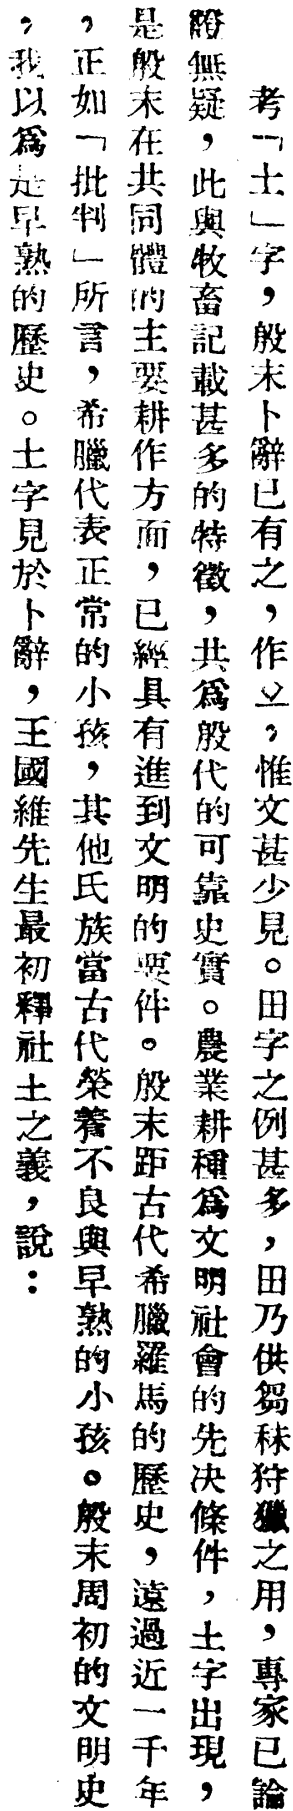 考「土」字，殷末卜辭已有之，作⊥，惟文甚少見。田字之例甚多，田乃供芻秣狩獵之用，專家已論
證無疑，此與牧畜記載甚多的特徵，共爲殷代的可靠史實。農業耕種爲文明社會的先決條件，土字出現，
是殷末在共同體的主要耕作方面，已經具有進到文明的要件。殷末距古代希臘羅馬的歷史，遠過近一千年
，正如「批判」所言，希臘代表正常的小孩，其他氏族當古代榮養不良與早熟的小孩。殷末周初的文明史
，我以爲是早熟的歷史。土字見於卜辭，王國維先生最初釋社土之義，說：